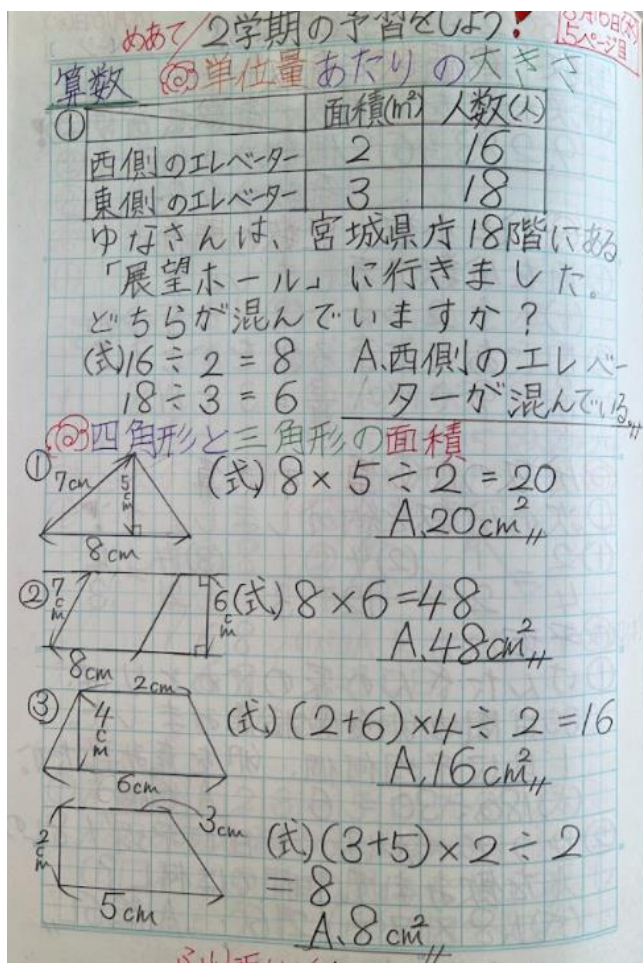 めあて/2学期の予習をしよう!
5ページ目
算数 ◎単位量あたりの大きさ
① 面積(m²) 人数(人)
西側のエレベーター 2 16
東側のエレベーター 3 18
ゆなさんは、宮城県庁18階にある
「展望ホール」に行きました。
どちらが混んでいますか?
(式)16÷2=8 A.西側のエレベー
18÷3=6 ターが混んでいる。
◎四角形と三角形の面積
① 7cm 5cm (式)8×5÷2=20
A.20cm²
8cm
② 7cm 6cm (式)8×6=48
A.48cm²
8cm
2cm
③ 4cm (式)(2+6)×4÷2=16
A.16cm²
6cm
3cm
2cm (式)(3+5)×2÷2
=8
5cm
A.8cm²